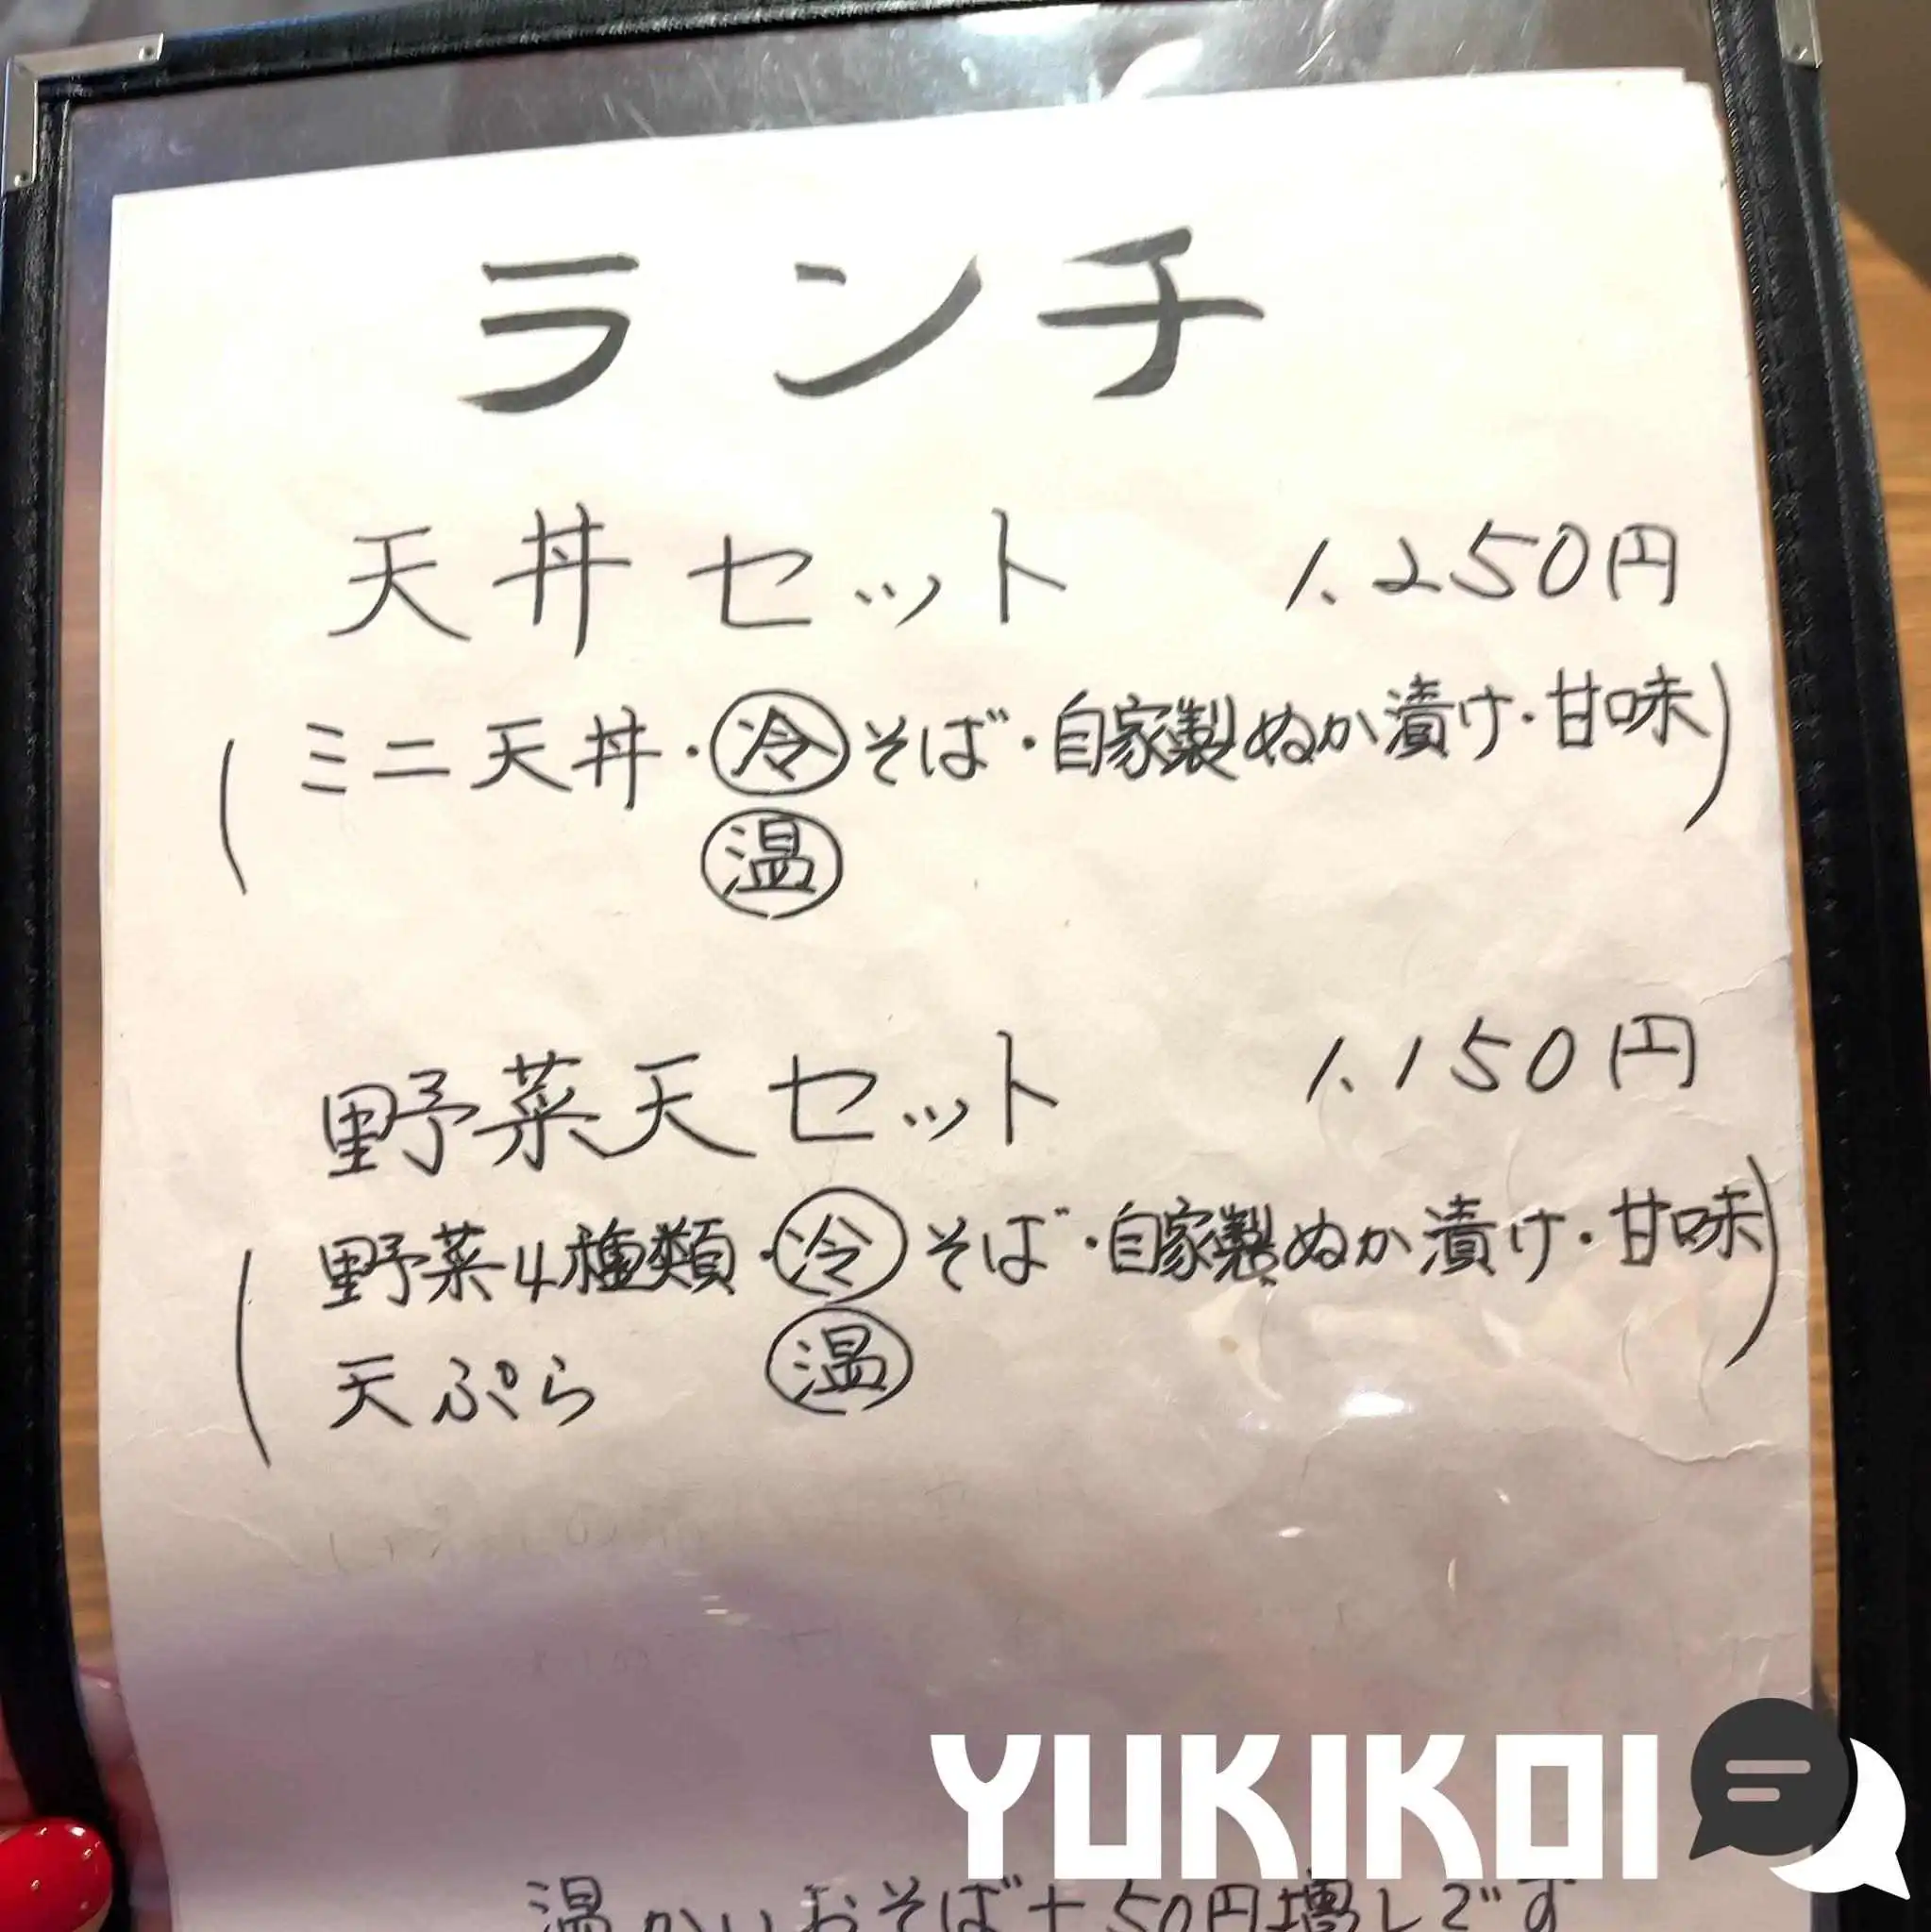 ランチ
天丼セット 1.250円
(ミニ天丼・冷そば・自家製ぬか漬け・甘味)
温
野菜天セット 1.150円
(野菜4種類・冷そば・自家製ぬか漬け・甘味)
天ぷら 温
YUKIKOI
温かいおそば+50円増しです